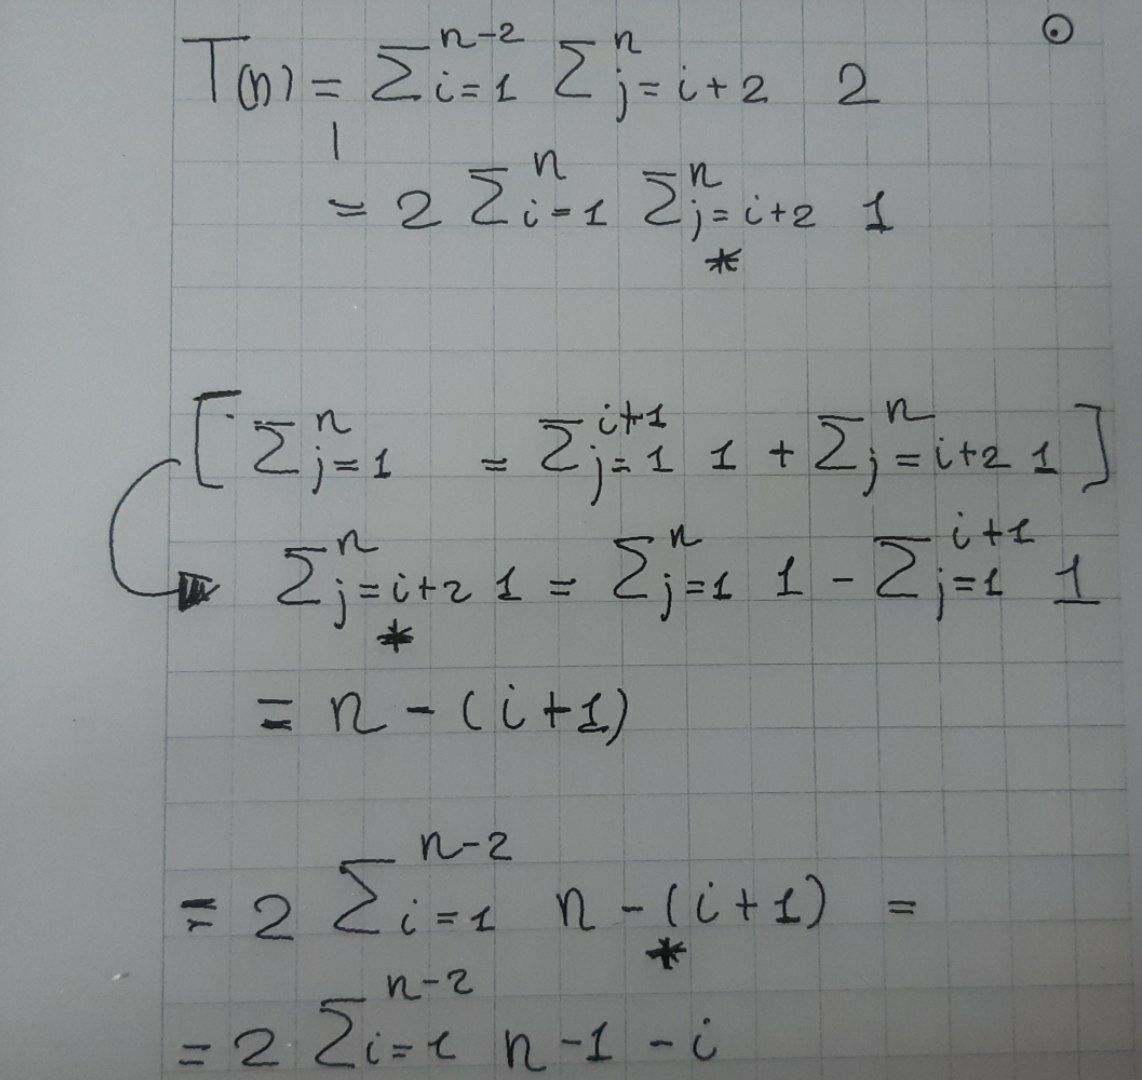 T(n) = Σ_{i=1}^{n-2} Σ_{j=i+2}^{n} 2
= 2 Σ_{i=1}^{n} Σ_{j=i+2}^{n} 1
*
[ Σ_{j=1}^{n} = Σ_{j=1}^{i+1} 1 + Σ_{j=i+2}^{n} 1 ]
Σ_{j=i+2}^{n} 1 = Σ_{j=1}^{n} 1 - Σ_{j=1}^{i+1} 1
*
= n - (i+1)
= 2 Σ_{i=1}^{n-2} n - (i+1) =
*
= 2 Σ_{i=1}^{n-2} n - 1 - i